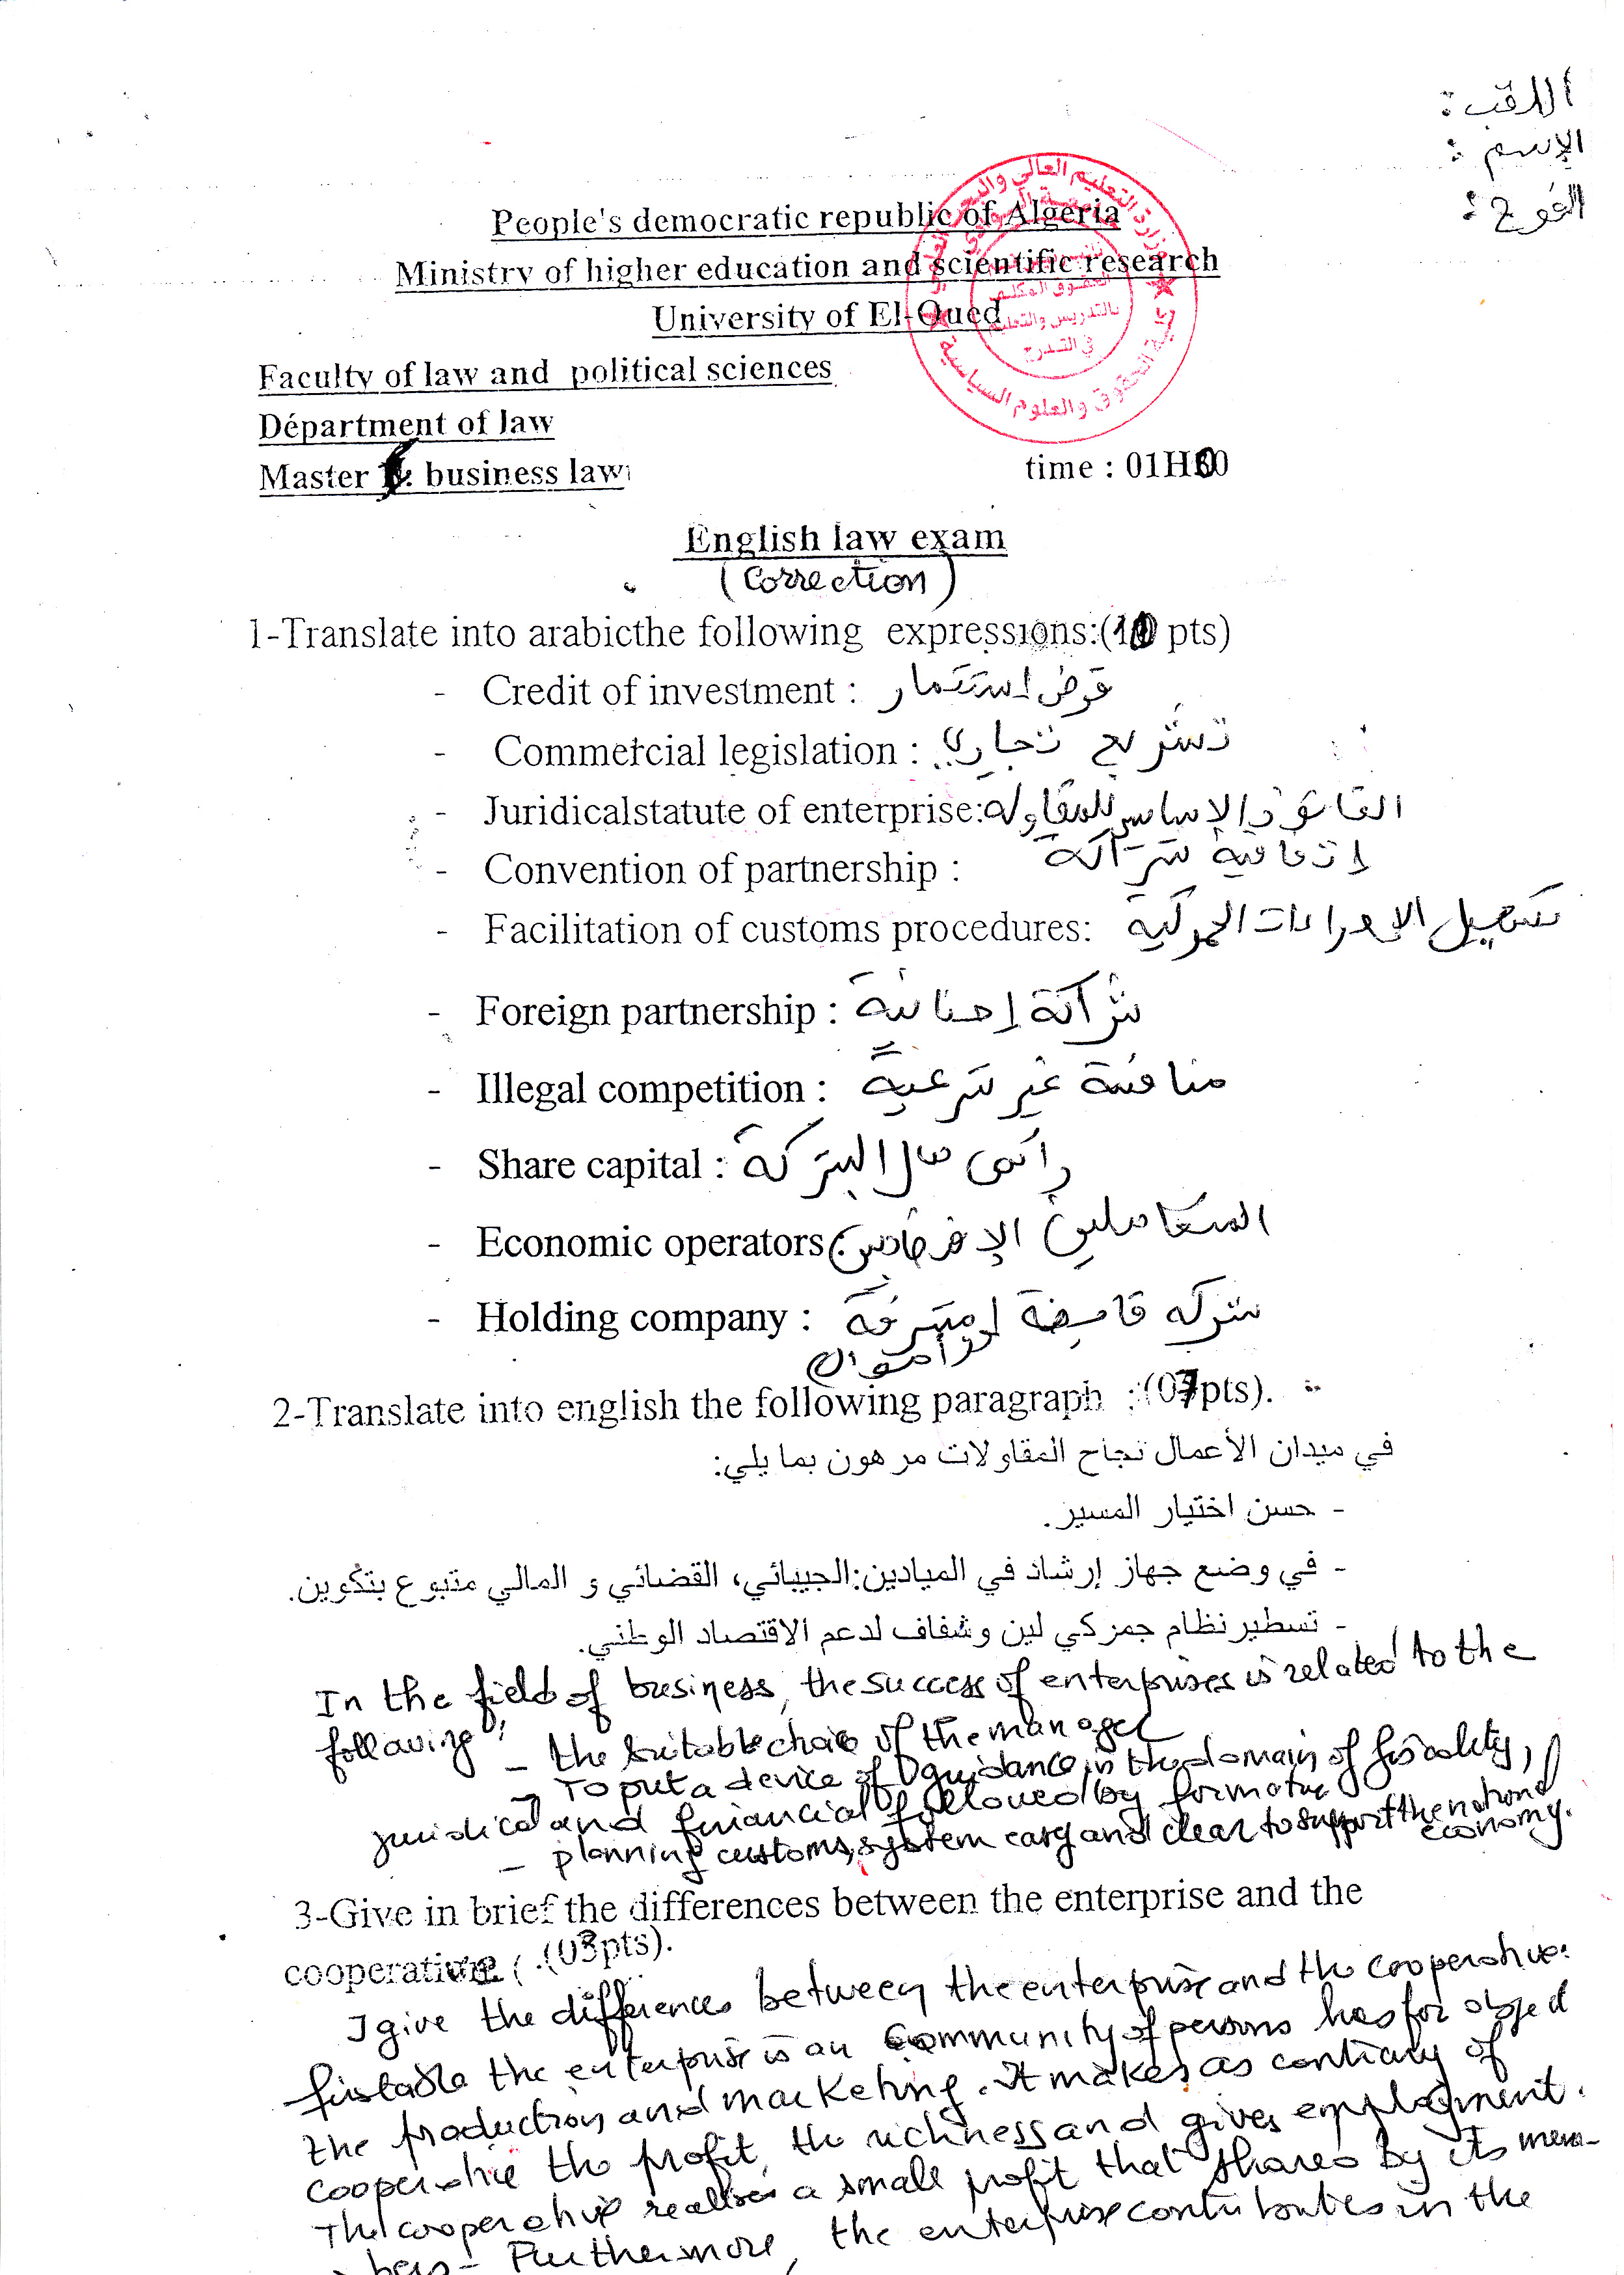 اللقب :
الإسم :
الفوج :
People's democratic republic of Algeria
Ministry of higher education and scientific research
University of El-Oued
Faculty of law and political sciences
Départment of law
Master business law
time : 01H00
English law exam
(Correction)
1-Translate into arabicthe following expressions:(10 pts)
- Credit of investment : قرض إستثمار
- Commercial legislation : تشريع تجاري
- Juridicalstatute of enterprise: القانون الإساسي للمقاولة
- Convention of partnership : إتفاقية شراكة
- Facilitation of customs procedures: تسهيل الإجراءات الجمركية
- Foreign partnership : شراكة
- Illegal competition : منافسة غير شرعية
- Share capital : رأس مال الشركة
- Economic operators: المتعاملين الإقتصاديين
- Holding company : شركة قابضة
أموال
2-Translate into english the following paragraph :(07pts).
في ميدان الأعمال نجاح المقاولات مرهون بما يلي:
- حسن اختيار المسير.
- في وضع جهاز إرشاد في الميادين:الجيبائي، القضائي و المالي متبوع بتكوين.
- تسطير نظام جمركي لين وشفاف لدعم الاقتصاد الوطني.
In the field of business, the success of enterprises is related to the
following : - the suitable choice of the manager
- To put a device of guidance in the domain of fiscality,
juridical and financial followed by
- planning customs, system easy and clear to support the national
economy.
3-Give in brief the differences between the enterprise and the
cooperative (03pts).
I give the differences between the enterprise and the cooperative.
the enterprise is an community of persons has for object
the production and marketing. It makes as contrary of
cooperative the profit, the richness and gives employment.
The cooperative realises a small profit that shares by its mem-
bers - Furthermore, the enterprise contributes in the